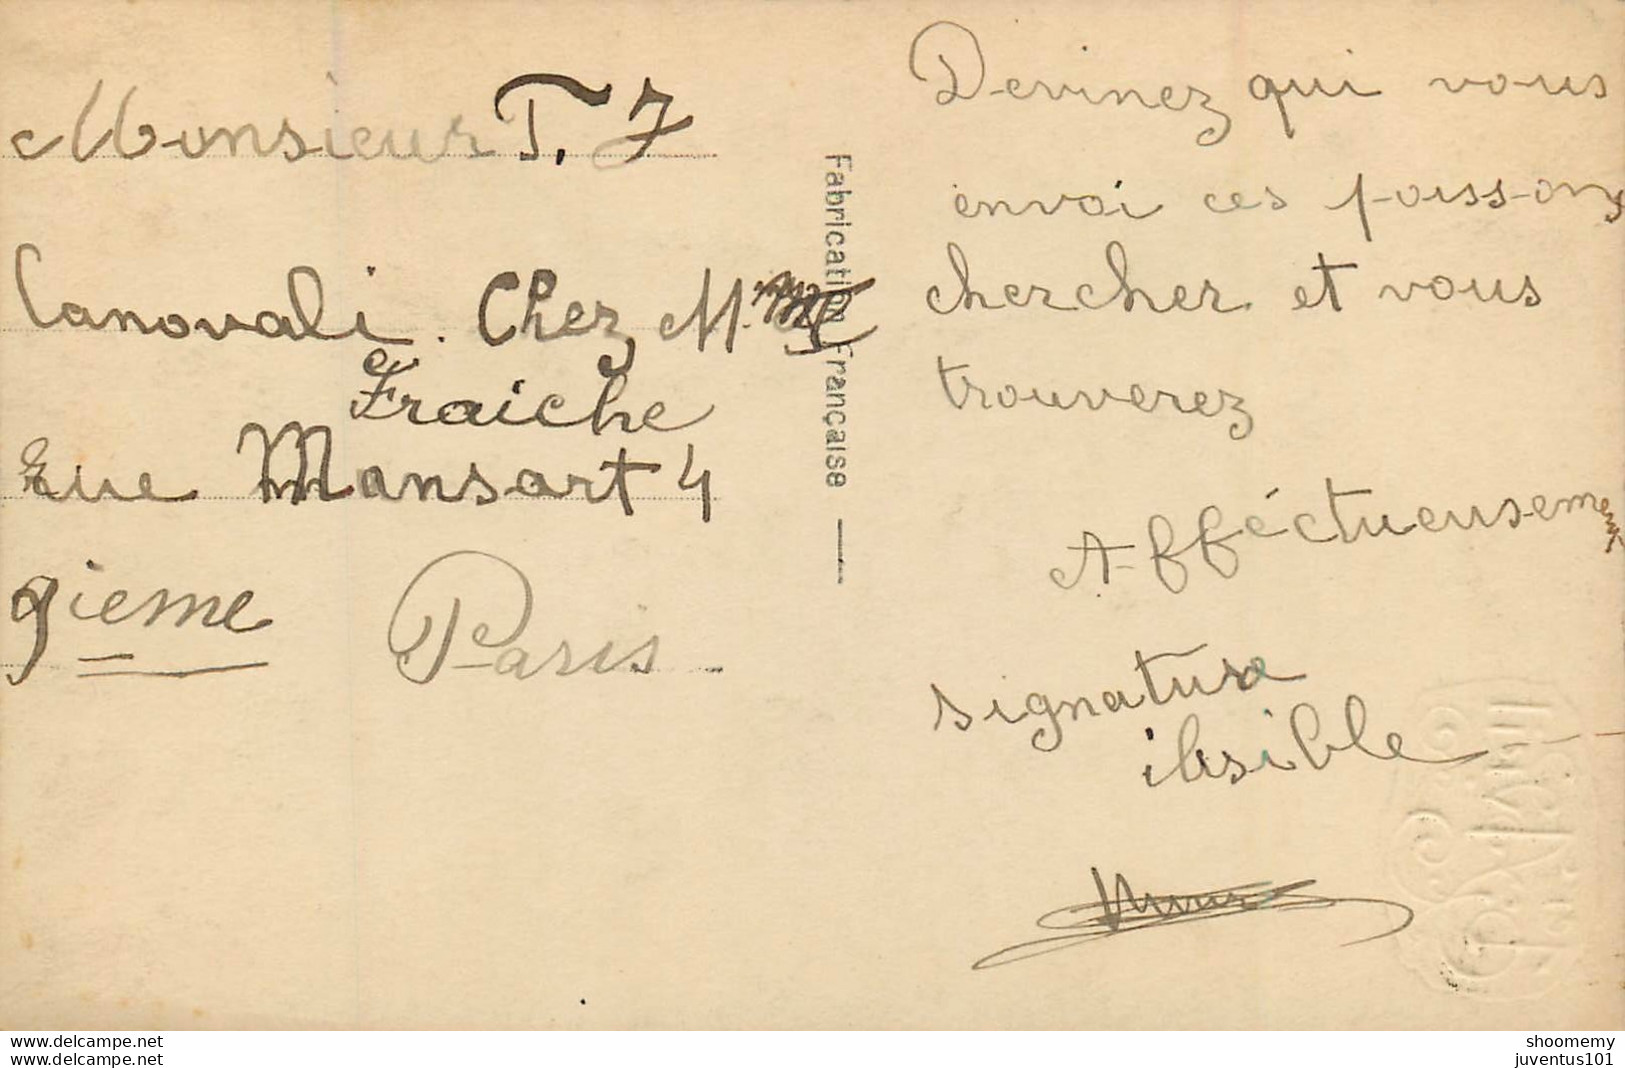 Monsieur T. J
Canovali. Chez Mme
Fraiche
Rue Mansart 4
9ieme Paris
Fabrication Française
Devinez qui vous
envoi ces poissons
chercher et vous
trouverez
Afféctueusement
signature
ilisible
delcampe.net
shoomemy
juventus101